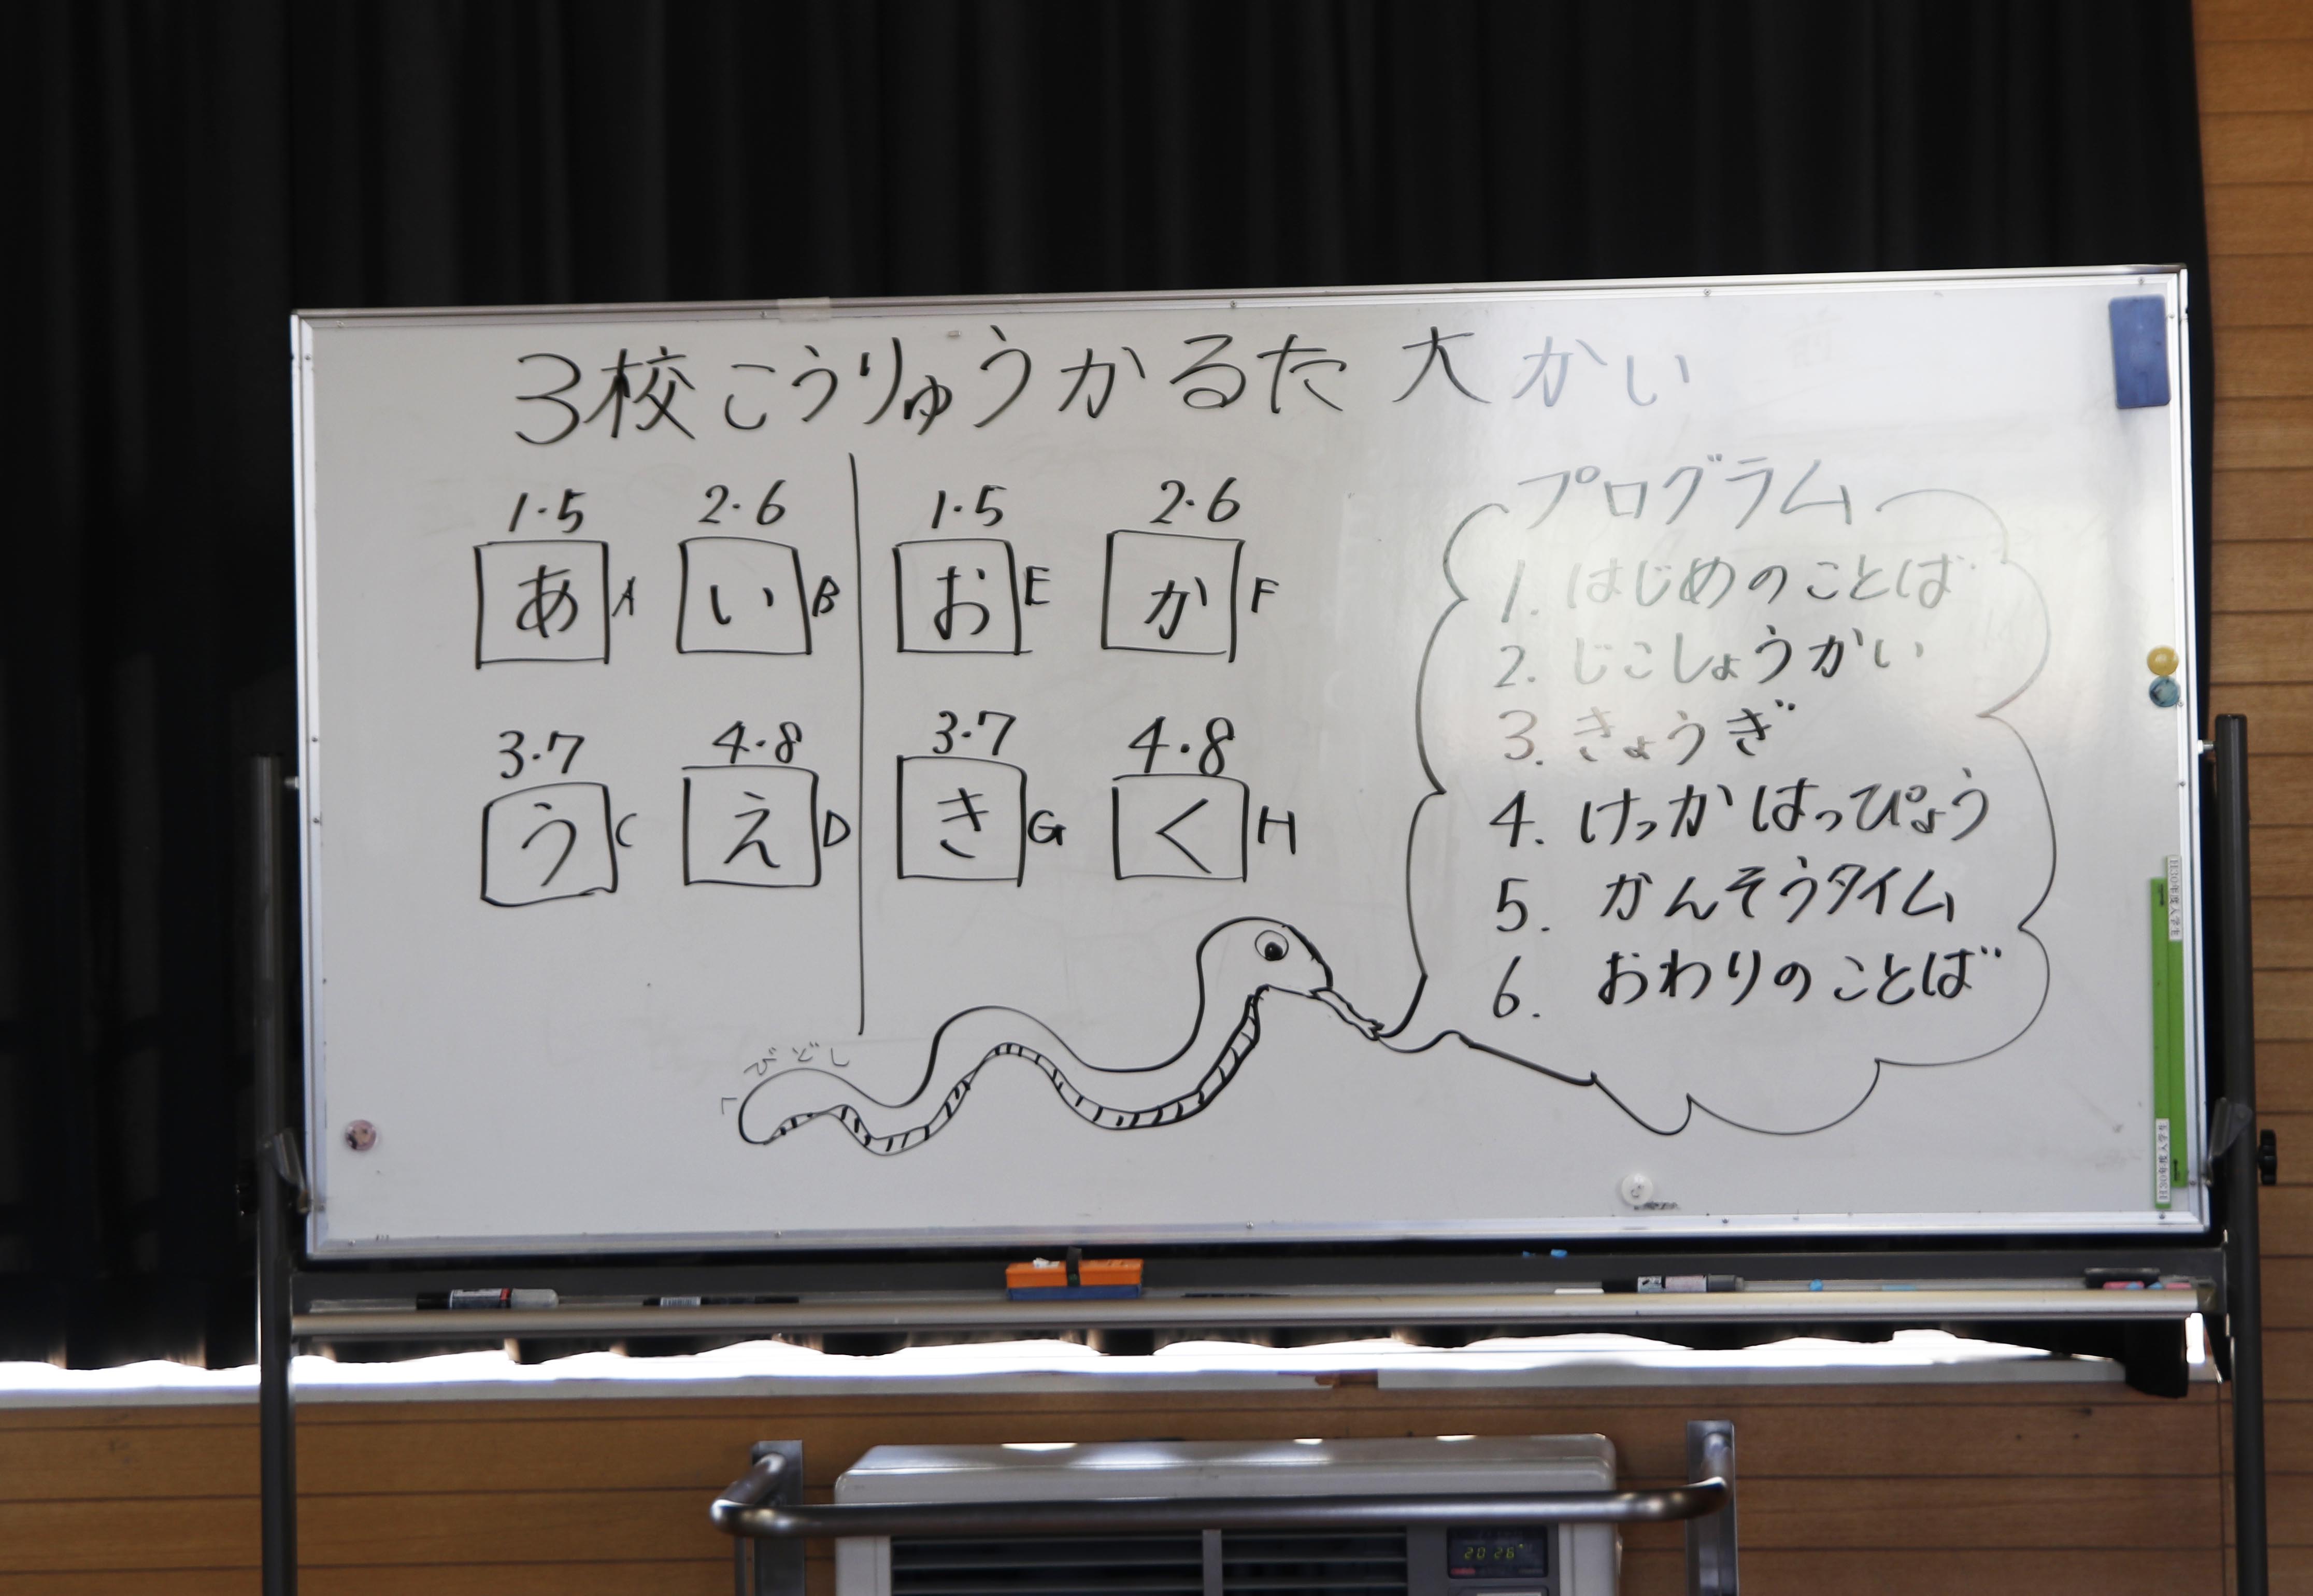 3校こうりゅうかるた大かい
1・5 2・6 1・5 2・6
あ A い B お E か F
3・7 4・8 3・7 4・8
う C え D き G く H
プログラム
1. はじめのことば
2. じこしょうかい
3. きょうぎ
4. けっかはっぴょう
5. かんそうタイム
6. おわりのことば
びどし
H30年度入学生
H30年度入学生
20 26